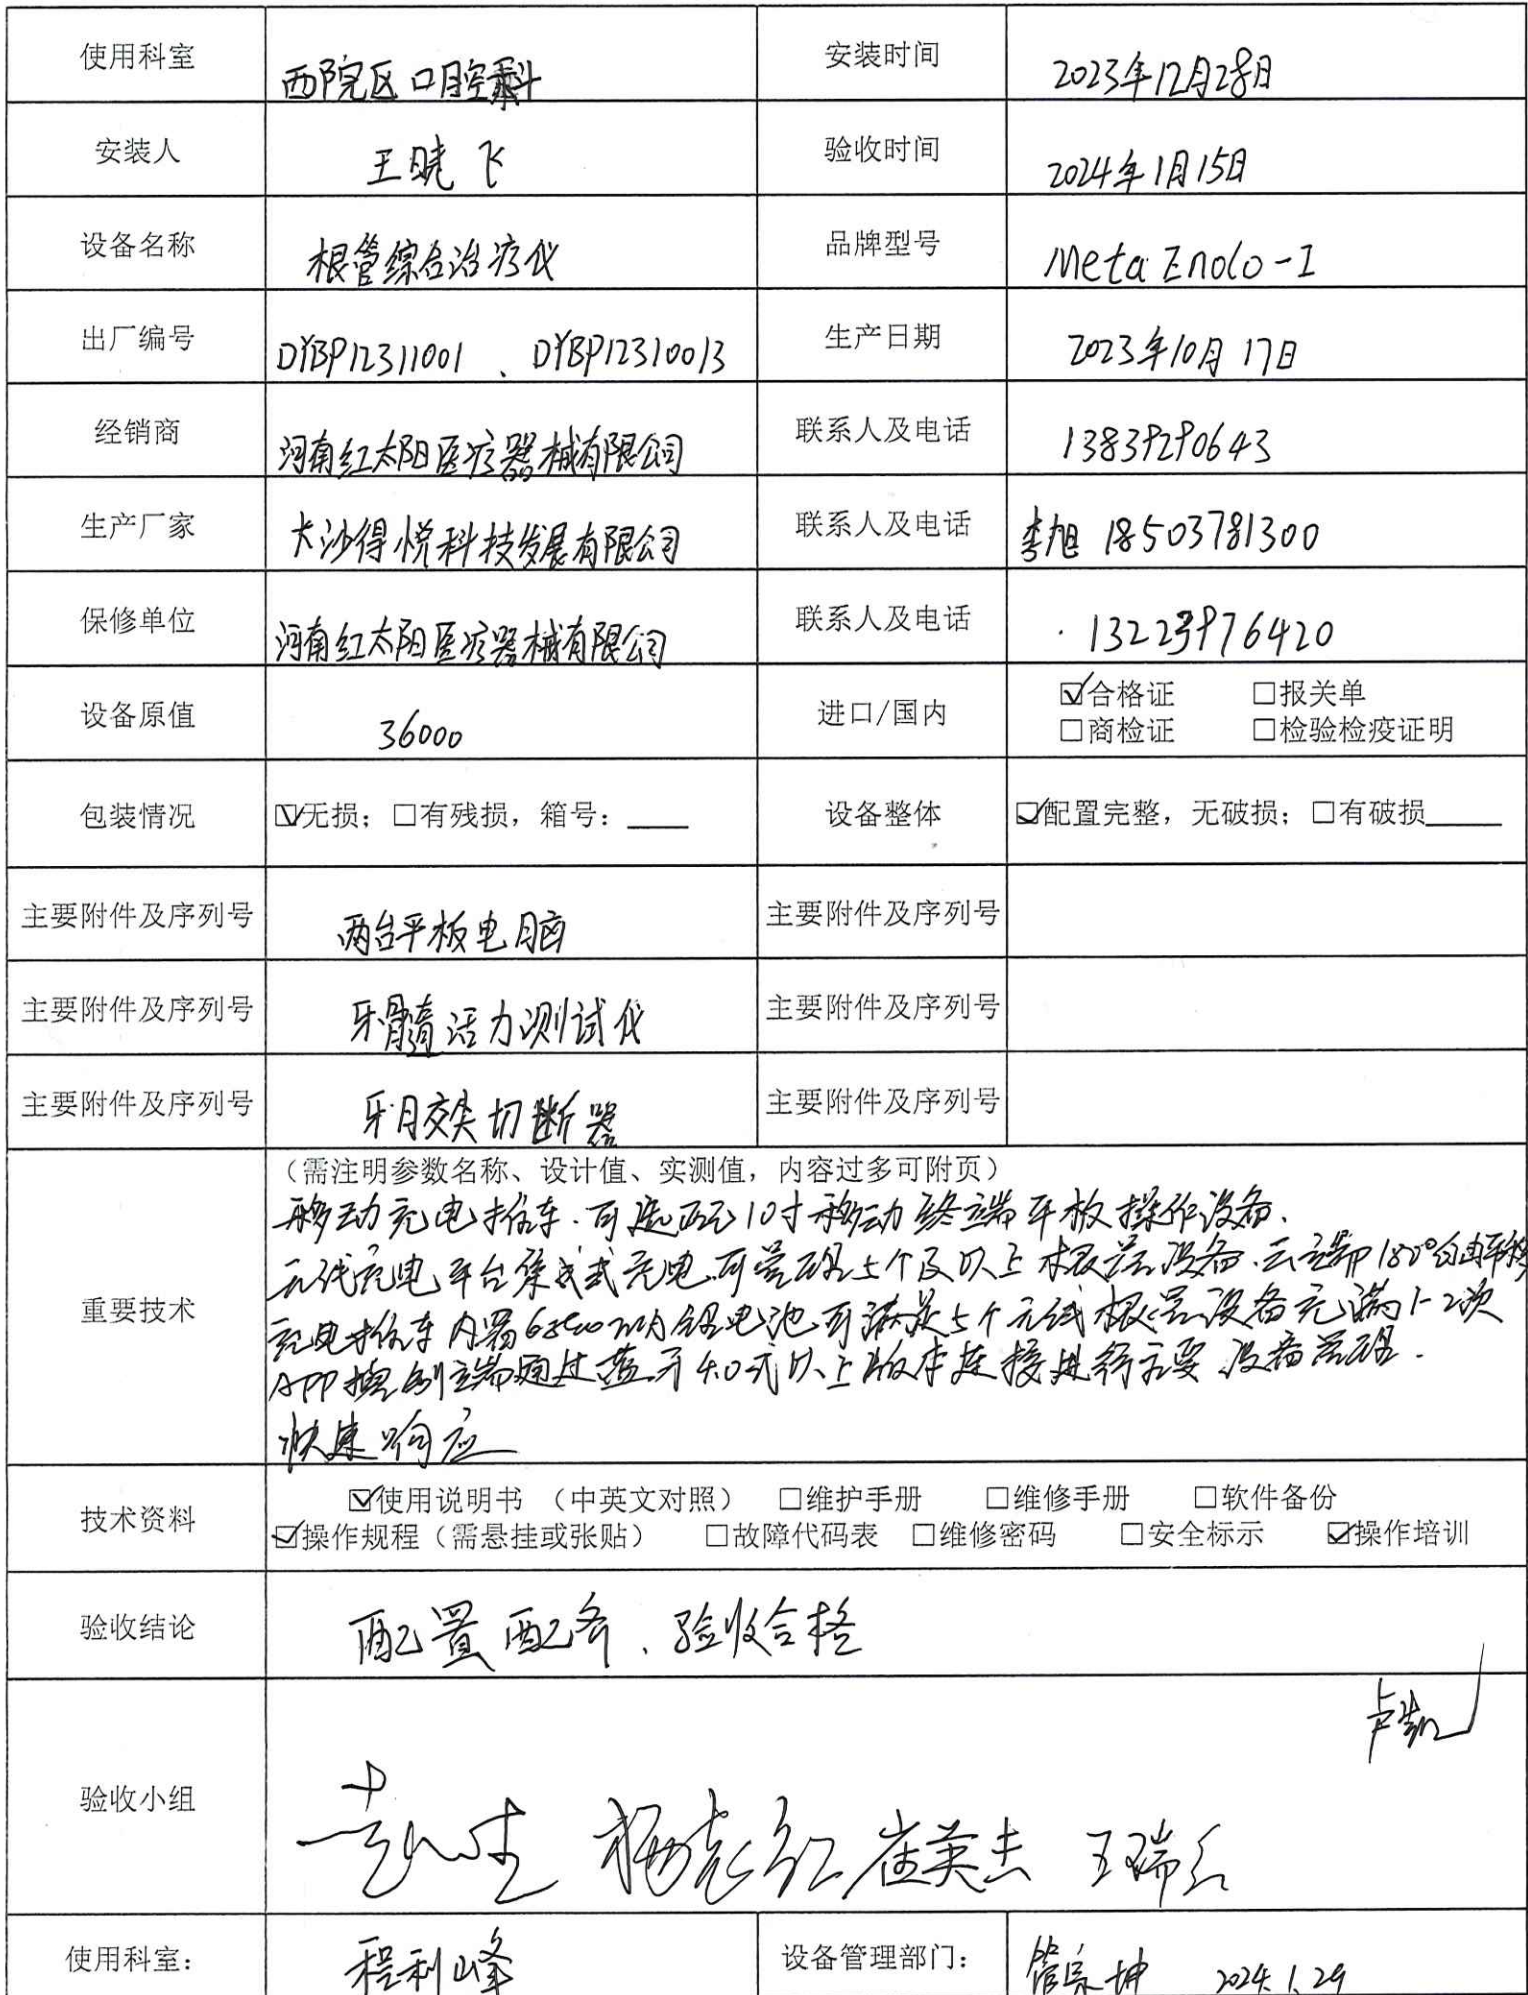 使用科室 西院区口腔科 安装时间 2023年12月28日
安装人 王晓飞 验收时间 2024年1月15日
设备名称 根管综合治疗仪 品牌型号 Meta Endo-I
出厂编号 DYBP12311001、DYBP12310013 生产日期 2023年10月17日
经销商 河南红太阳医疗器械有限公司 联系人及电话 13839290643
生产厂家 长沙得悦科技发展有限公司 联系人及电话 李旭 18503781300
保修单位 河南红太阳医疗器械有限公司 联系人及电话 13223976420
设备原值 36000 进口/国内 ☑合格证 □报关单
□商检证 □检验检疫证明
包装情况 ☑无损；□有残损，箱号：____ 设备整体 ☑配置完整，无破损；□有破损____
主要附件及序列号 两台平板电脑 主要附件及序列号
主要附件及序列号 牙髓活力测试仪 主要附件及序列号
主要附件及序列号 牙胶尖切断器 主要附件及序列号
重要技术 （需注明参数名称、设计值、实测值，内容过多可附页）
移动充电推车.可选配10寸移动终端平板操作设备.
无线充电平台集成式充电.可管理5个及以上根管设备.云端180°自由
充电推车内置 锂电池可满足5个无线根管设备充满1-2次
APP控制端通过蓝牙4.0或以上版本连接进行主要设备管理.
快速响应
技术资料 ☑使用说明书（中英文对照） □维护手册 □维修手册 □软件备份
☑操作规程（需悬挂或张贴） □故障代码表 □维修密码 □安全标示 ☑操作培训
验收结论 配置配齐、验收合格
验收小组 卢凯
崔英杰 王瑞红
使用科室： 程利峰 设备管理部门： 管宗坤 2024.1.29